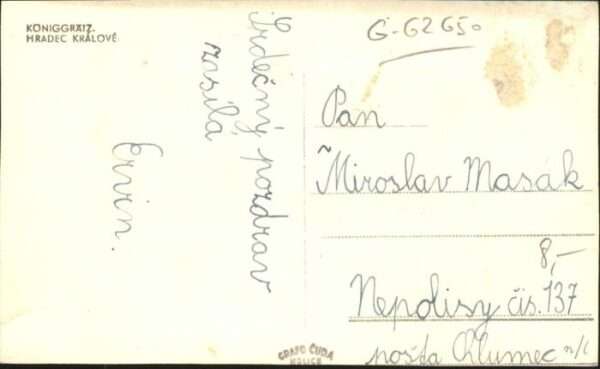 KÖNIGGRÄTZ.
HRADEC KRÁLOVÉ
Srdečný pozdrav
zasílá
Ervin.
G-62650
Pan
Miroslav Masák
8,-
Nepolisy čís. 137
pošta Chlumec n/C
GRAFO ČUDA
HOLICE